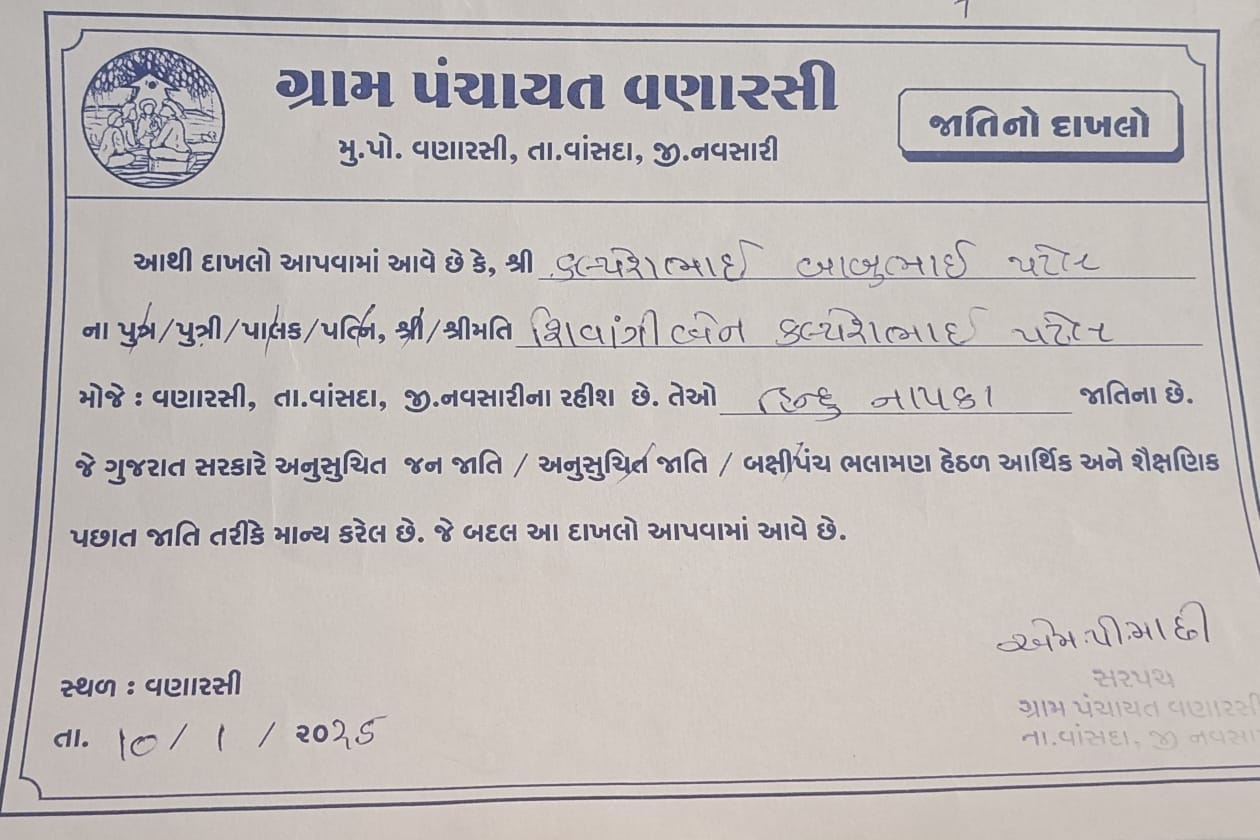 ગ્રામ પંચાયત વણારસી
મુ.પો. વણારસી, તા.વાંસદા, જી.નવસારી
જાતિનો દાખલો
આથી દાખલો આપવામાં આવે છે કે, શ્રી કલ્પેશભાઈ બાબુભાઈ પટેલ
ના પુત્ર/પુત્રી/પાલક/પત્નિ, શ્રી/શ્રીમતિ શિવાંગીબેન કલ્પેશભાઈ પટેલ
મોજે : વણારસી, તા.વાંસદા, જી.નવસારીના રહીશ છે. તેઓ હિન્દુ નાયકા જાતિના છે.
જે ગુજરાત સરકારે અનુસુચિત જન જાતિ / અનુસુચિત જાતિ / બક્ષીપંચ ભલામણ હેઠળ આર્થિક અને શૈક્ષણિક
પછાત જાતિ તરીકે માન્ય કરેલ છે. જે બદલ આ દાખલો આપવામાં આવે છે.
એમ.પી.માહી
સરપંચ
ગ્રામ પંચાયત વણારસી
તા.વાંસદા, જી નવસા
સ્થળ : વણારસી
તા. ૧૦ / ૧ / ૨૦૨૬